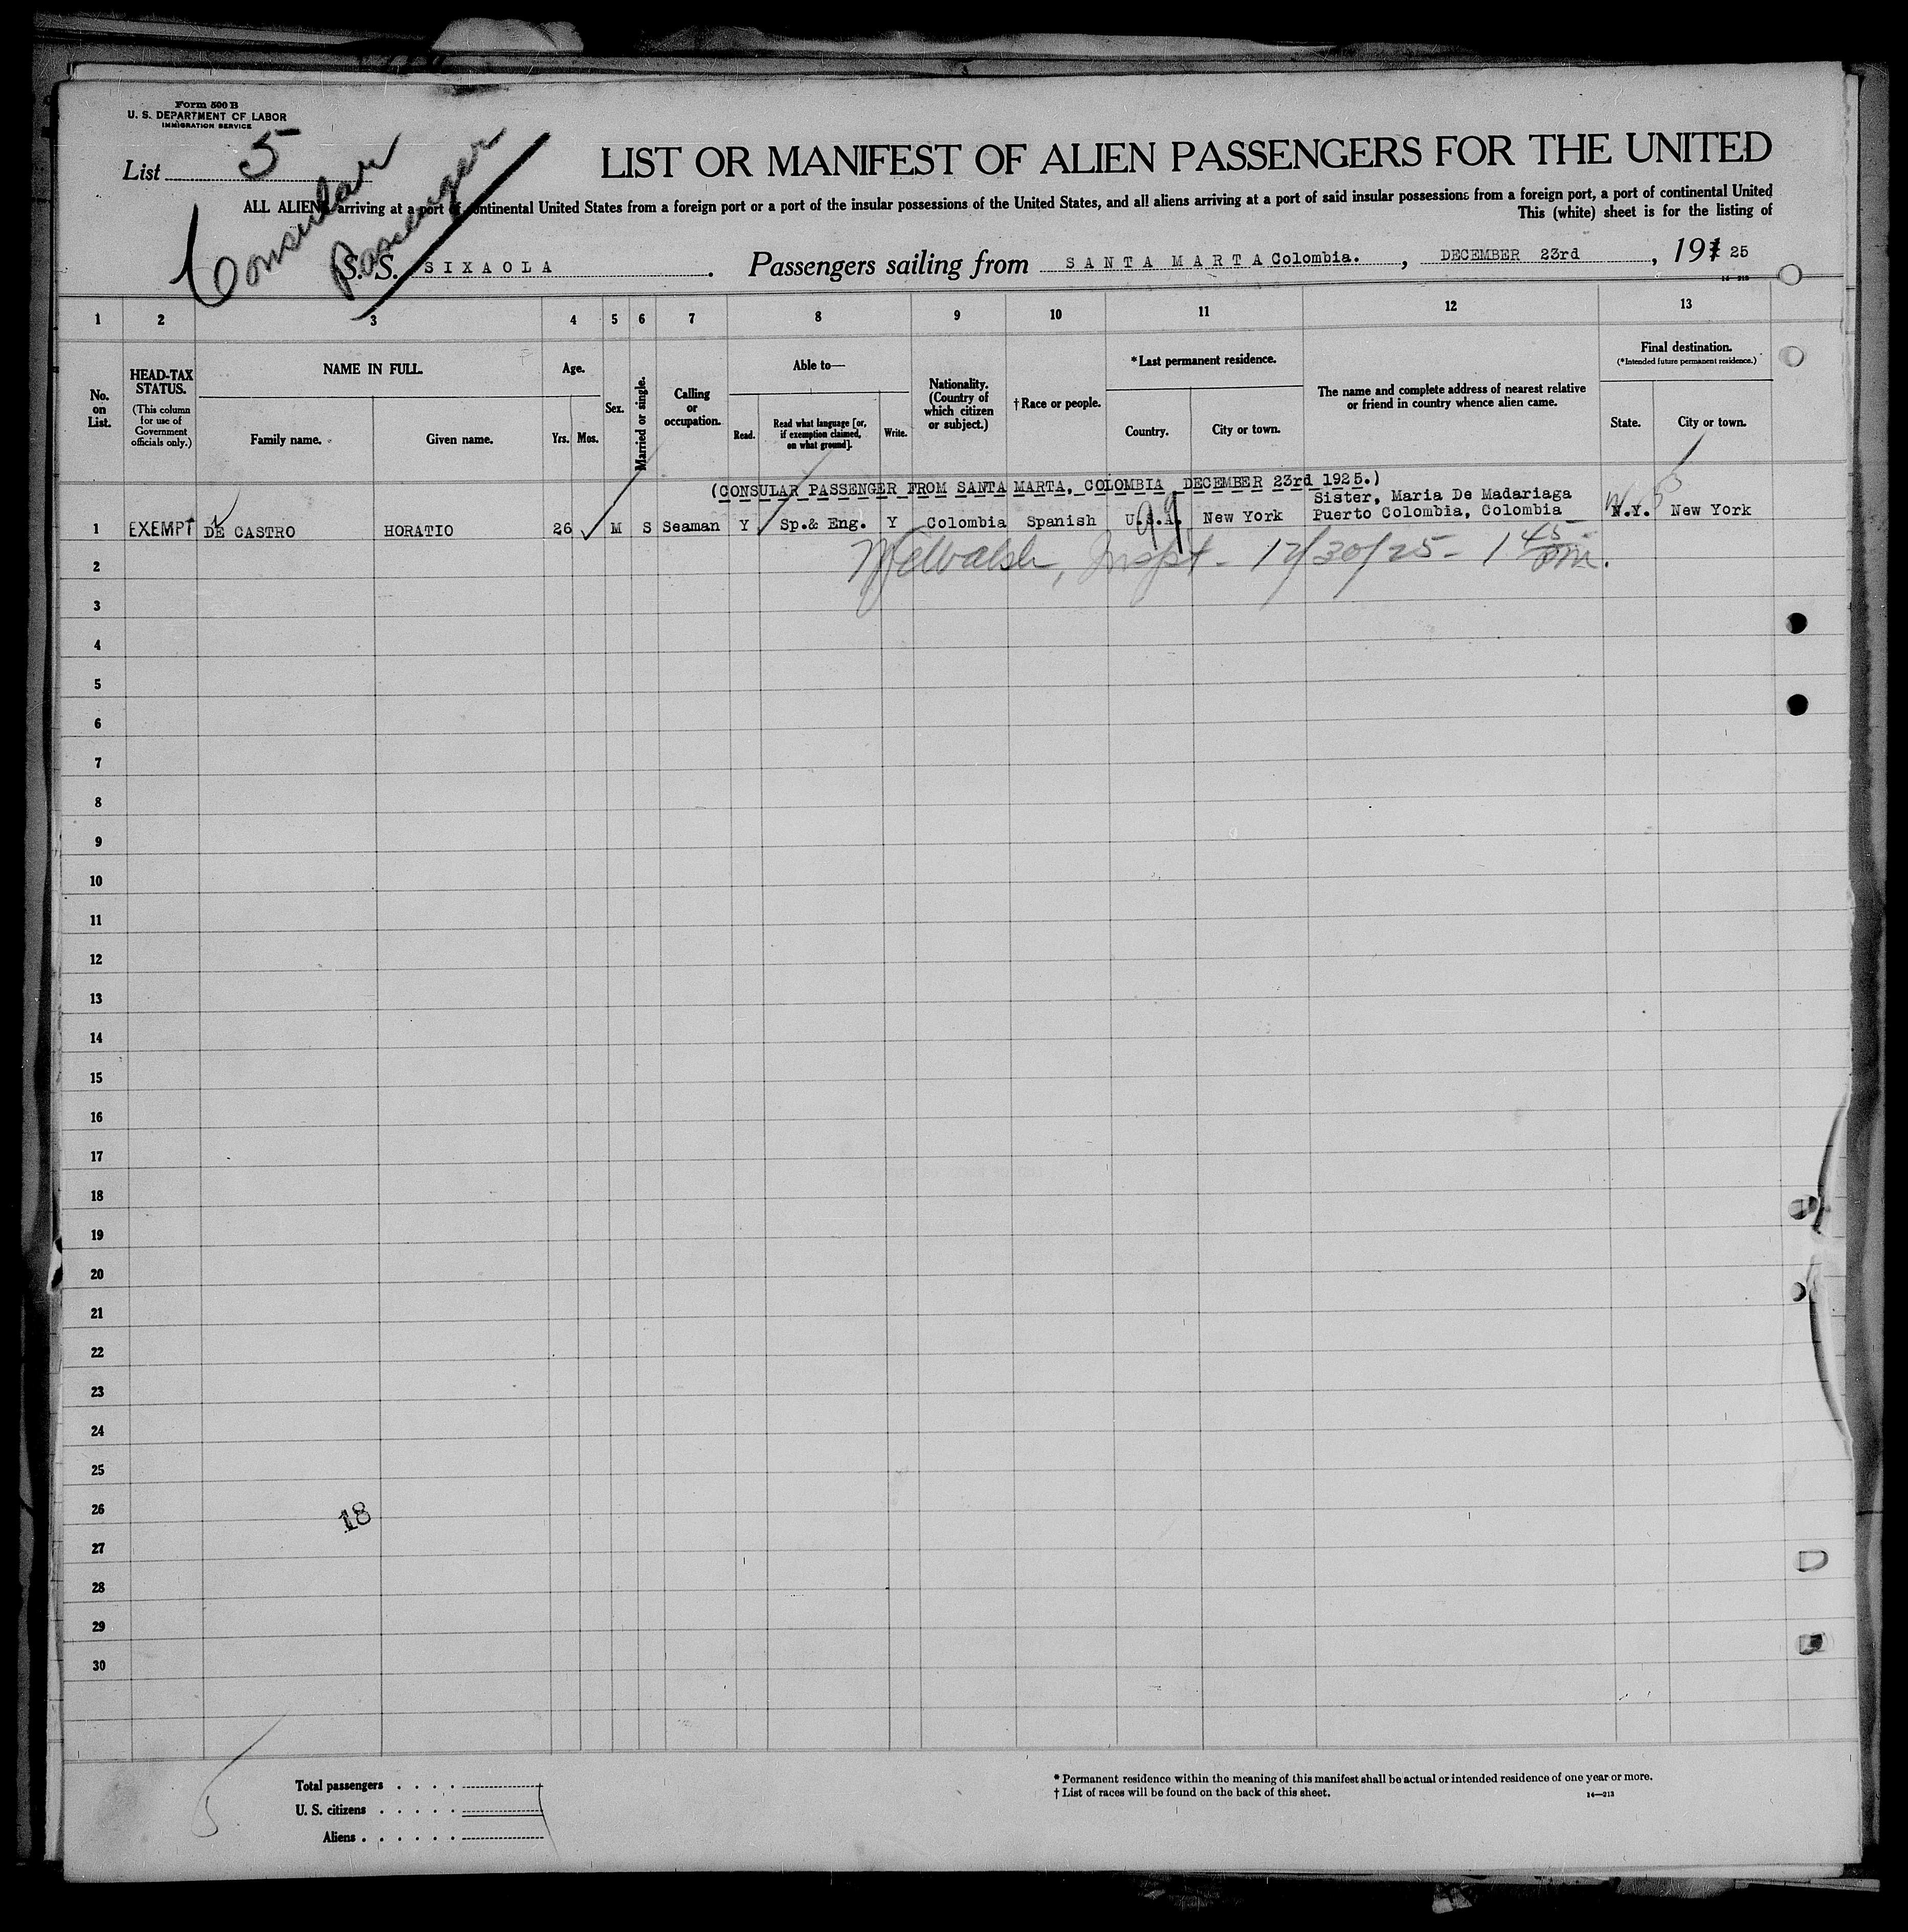 Form 500 B
U. S. DEPARTMENT OF LABOR
IMMIGRATION SERVICE
List 5
Consular
Passenger
LIST OR MANIFEST OF ALIEN PASSENGERS FOR THE UNITED
ALL ALIENS arriving at a port of continental United States from a foreign port or a port of the insular possessions of the United States, and all aliens arriving at a port of said insular possessions from a foreign port, a port of continental United
This (white) sheet is for the listing of
S. S. SIXAOLA. Passengers sailing from SANTA MARTA Colombia., DECEMBER 23rd, 191 25
14-213
1 2 3 4 5 6 7 8 9 10 11 12 13
No. on List.
HEAD-TAX STATUS.
(This column for use of Government officials only.)
NAME IN FULL.
Family name. Given name.
Age.
Yrs. Mos.
Sex.
Married or single.
Calling or occupation.
Able to—
Read. Read what language [or, if exemption claimed, on what ground]. Write.
Nationality. (Country of which citizen or subject.)
†Race or people.
*Last permanent residence.
Country. City or town.
The name and complete address of nearest relative or friend in country whence alien came.
Final destination.
(*Intended future permanent residence.)
State. City or town.
(CONSULAR PASSENGER FROM SANTA MARTA, COLOMBIA DECEMBER 23rd 1925.)
Sister, Maria De Madariaga
1 EXEMPT DE CASTRO HORATIO 26 M S Seaman Y Sp.& Eng. Y Colombia Spanish U.S.A. New York Puerto Colombia, Colombia N.Y. New York
99
2 Inspt - 12/30/25 - 1 45 pm.
3
4
5
6
7
8
9
10
11
12
13
14
15
16
17
18
19
20
21
22
23
24
25
26
18
27
28
29
30
Total passengers . . . .
U. S. citizens . . . . .
Aliens . . . . . .
* Permanent residence within the meaning of this manifest shall be actual or intended residence of one year or more.
† List of races will be found on the back of this sheet.
14—213